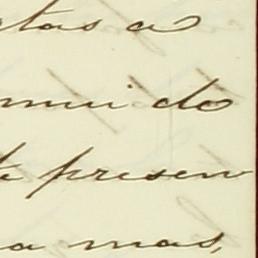 tas a
mui do
te presen
a mas,